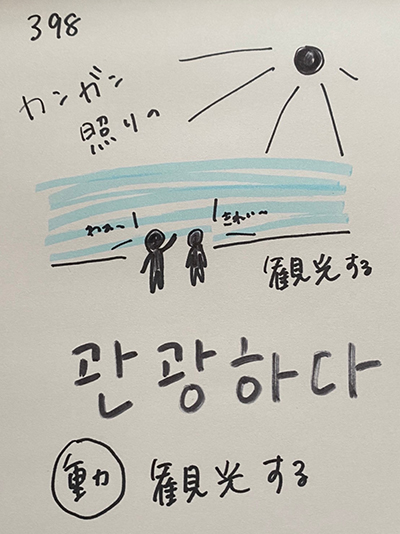 398
カンガン
照りの
わぁ〜 きれい〜
観光する
관광하다
動 観光する